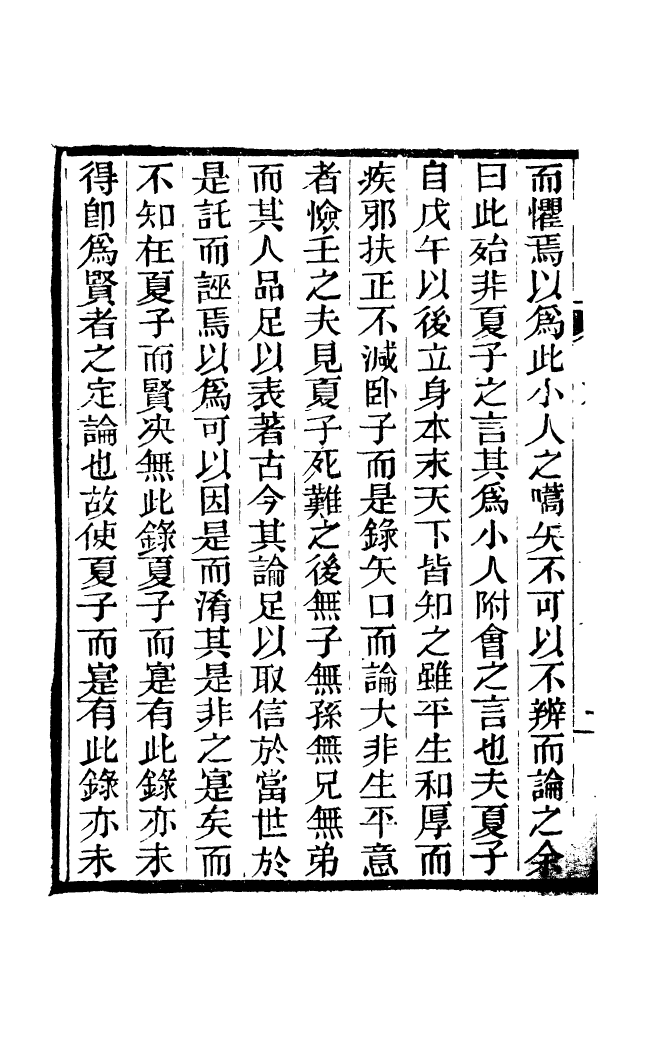 而懼焉以爲此小人之嚆矢不可以不辨而論之余
曰此殆非夏子之言其爲小人附會之言也夫夏子
自戊午以後立身本末天下皆知之雖平生和厚而
疾邪扶正不減卧子而是錄矢口而論大非生平意
者憸壬之夫見夏子死難之後無子無孫無兄無弟
而其人品足以表著古今其論足以取信於當世於
是託而誣焉以爲可以因是而淆其是非之寔矣而
不知在夏子而賢决無此錄夏子而寔有此錄亦未
得卽爲賢者之定論也故使夏子而寔有此錄亦未